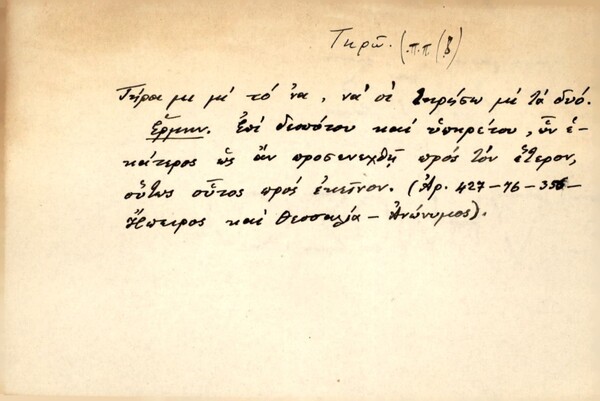 Τηρῶ. (.π.π (β)
Τήρα με μέ τό ἕνα, νά σέ τηρήσω μέ τά δυό.
Ἑρμην. Ἐπί δεσπότου καί ὑπηρέτου, ὧν ἑ-
κάτερος ὡς ἄν προσενεχθῇ πρός τόν ἕτερον,
οὕτως οὗτος πρός ἐκεῖνον. (Ἀρ. 427-76-356-
Ἤπειρος καί Θεσσαλία - Ἀνώνυμος).